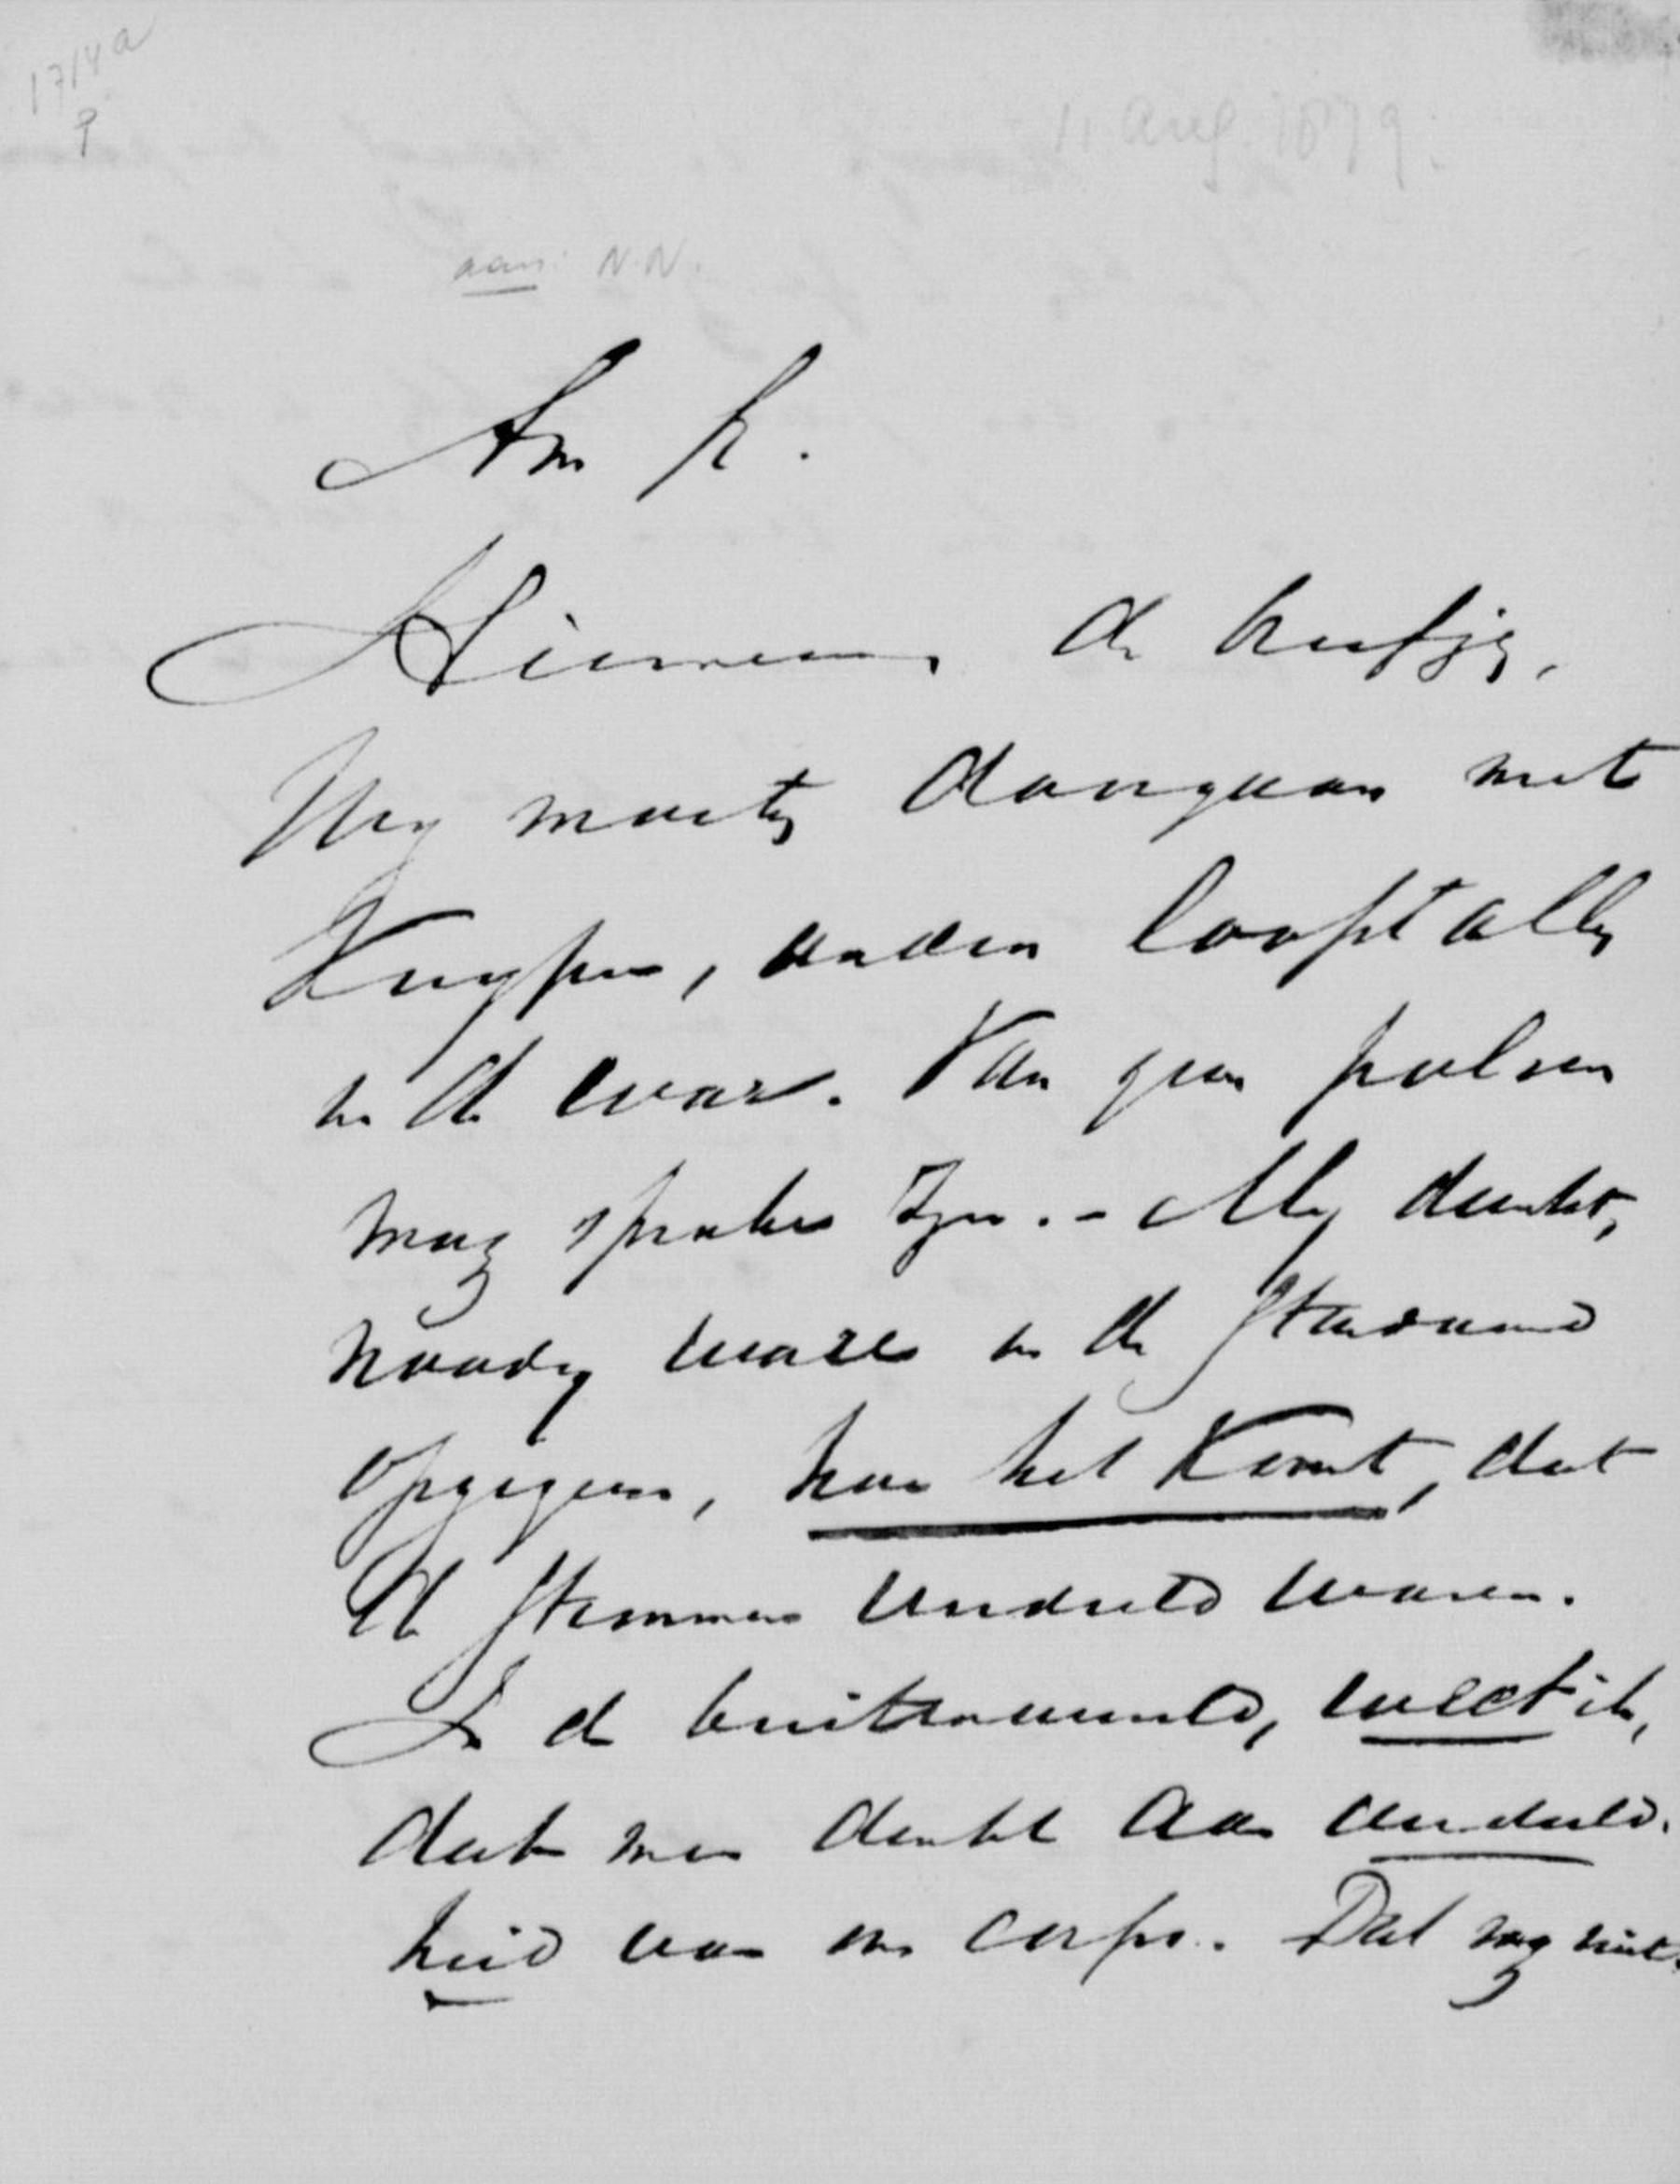 1714a
11 Aug. 1879.
aan: N.N.
Am. fr.
Hiernevens de briefjes.
Wy moeten doorgaan met
Kuyper, anders loopt alles
in de war. Van geen
mag sprake zyn. - My dunkt,
noodig ware in de Standaard
opgegeven, hoe het komt, dat
de stemmen verdeeld waren.
In de buitenwereld, weet ik,
dat men denkt aan verdeeld-
heid van ons corps. Dat mag niet.